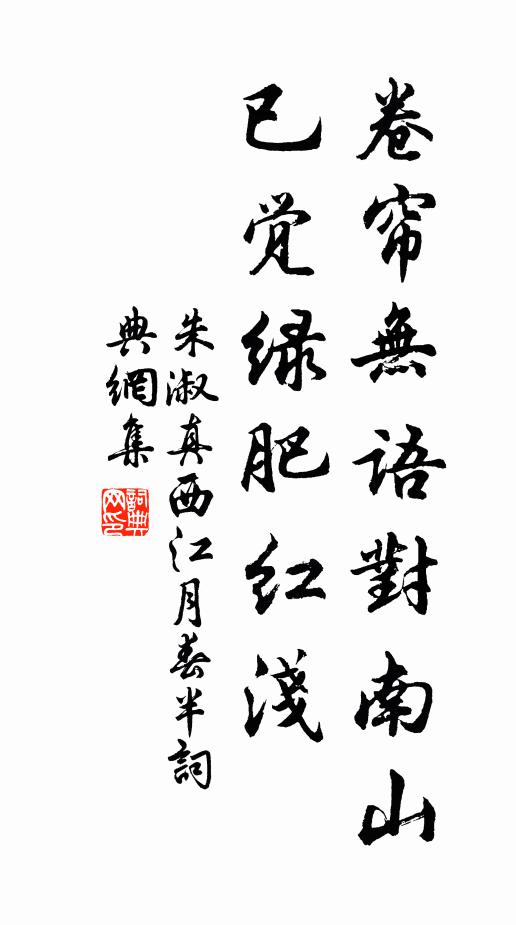 卷帘無語對南山
已觉绿肥红淺
朱淑真西江月春半詞
典網集
詞典網印